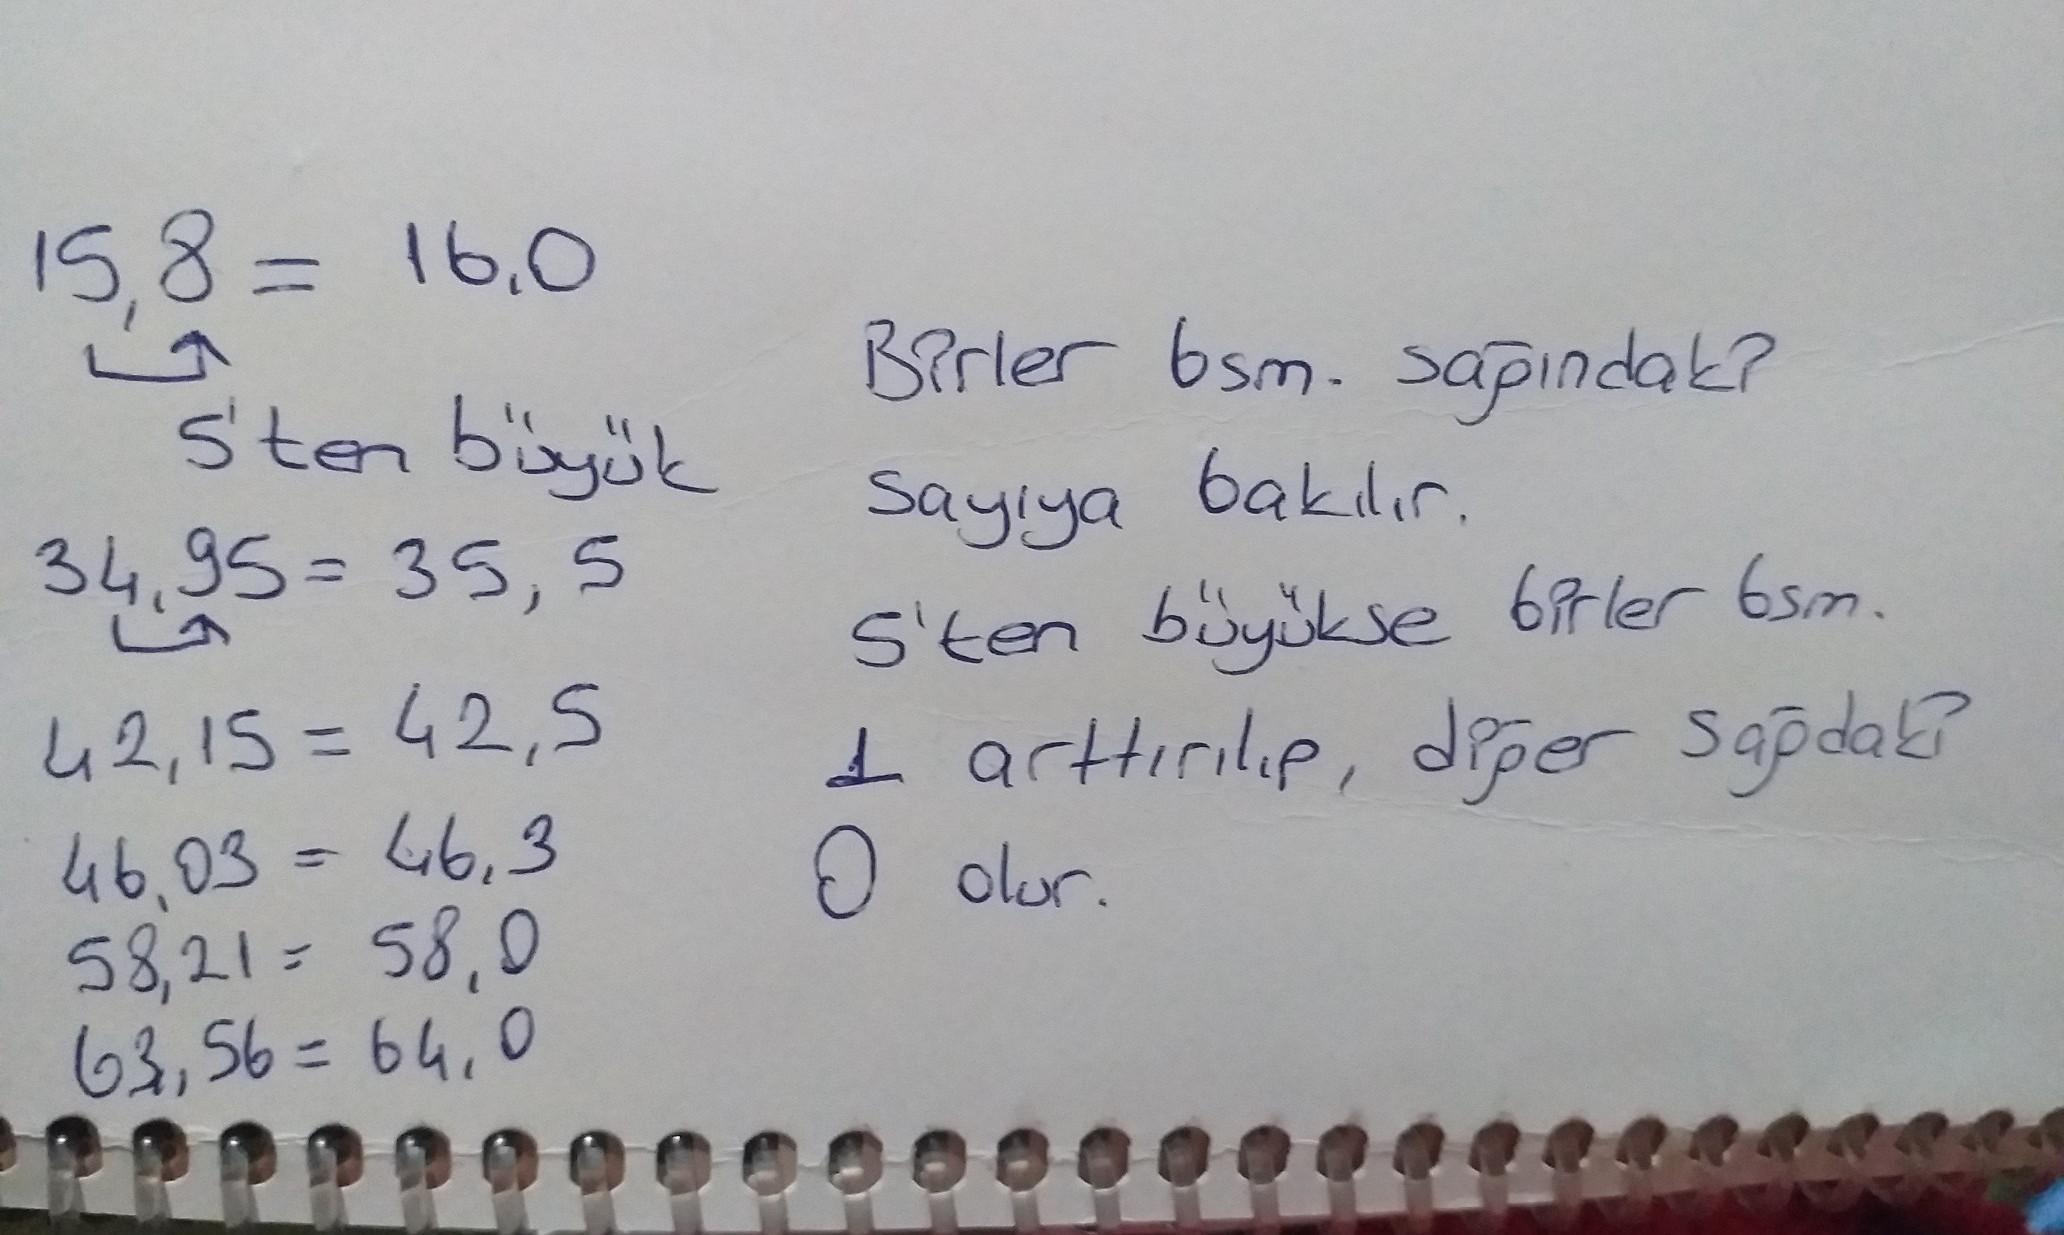 15,8 = 16,0
5'ten büyük
34,95 = 35,5
42,15 = 42,5
46,03 = 46,3
58,21 = 58,0
63,56 = 64,0
Birler bsm. sağındaki
sayıya bakılır.
5'ten büyükse birler bsm.
1 arttırılıp, diğer sağdaki
0 olur.